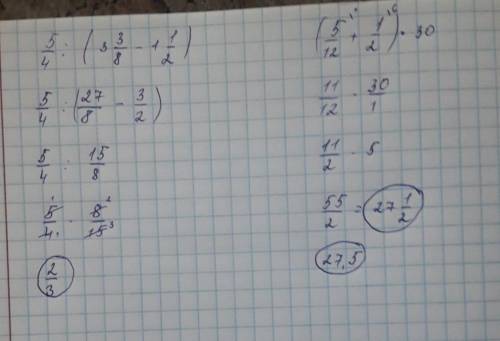 5/4 : (3 3/8 - 1 1/2)
5/4 : (27/8 - 3/2)
5/4 : 15/8
5/4 · 8/15
2/3
(5/12 + 1/2) · 30
11/12 · 30/1
11/2 · 5
55/2 = 27 1/2
27,5